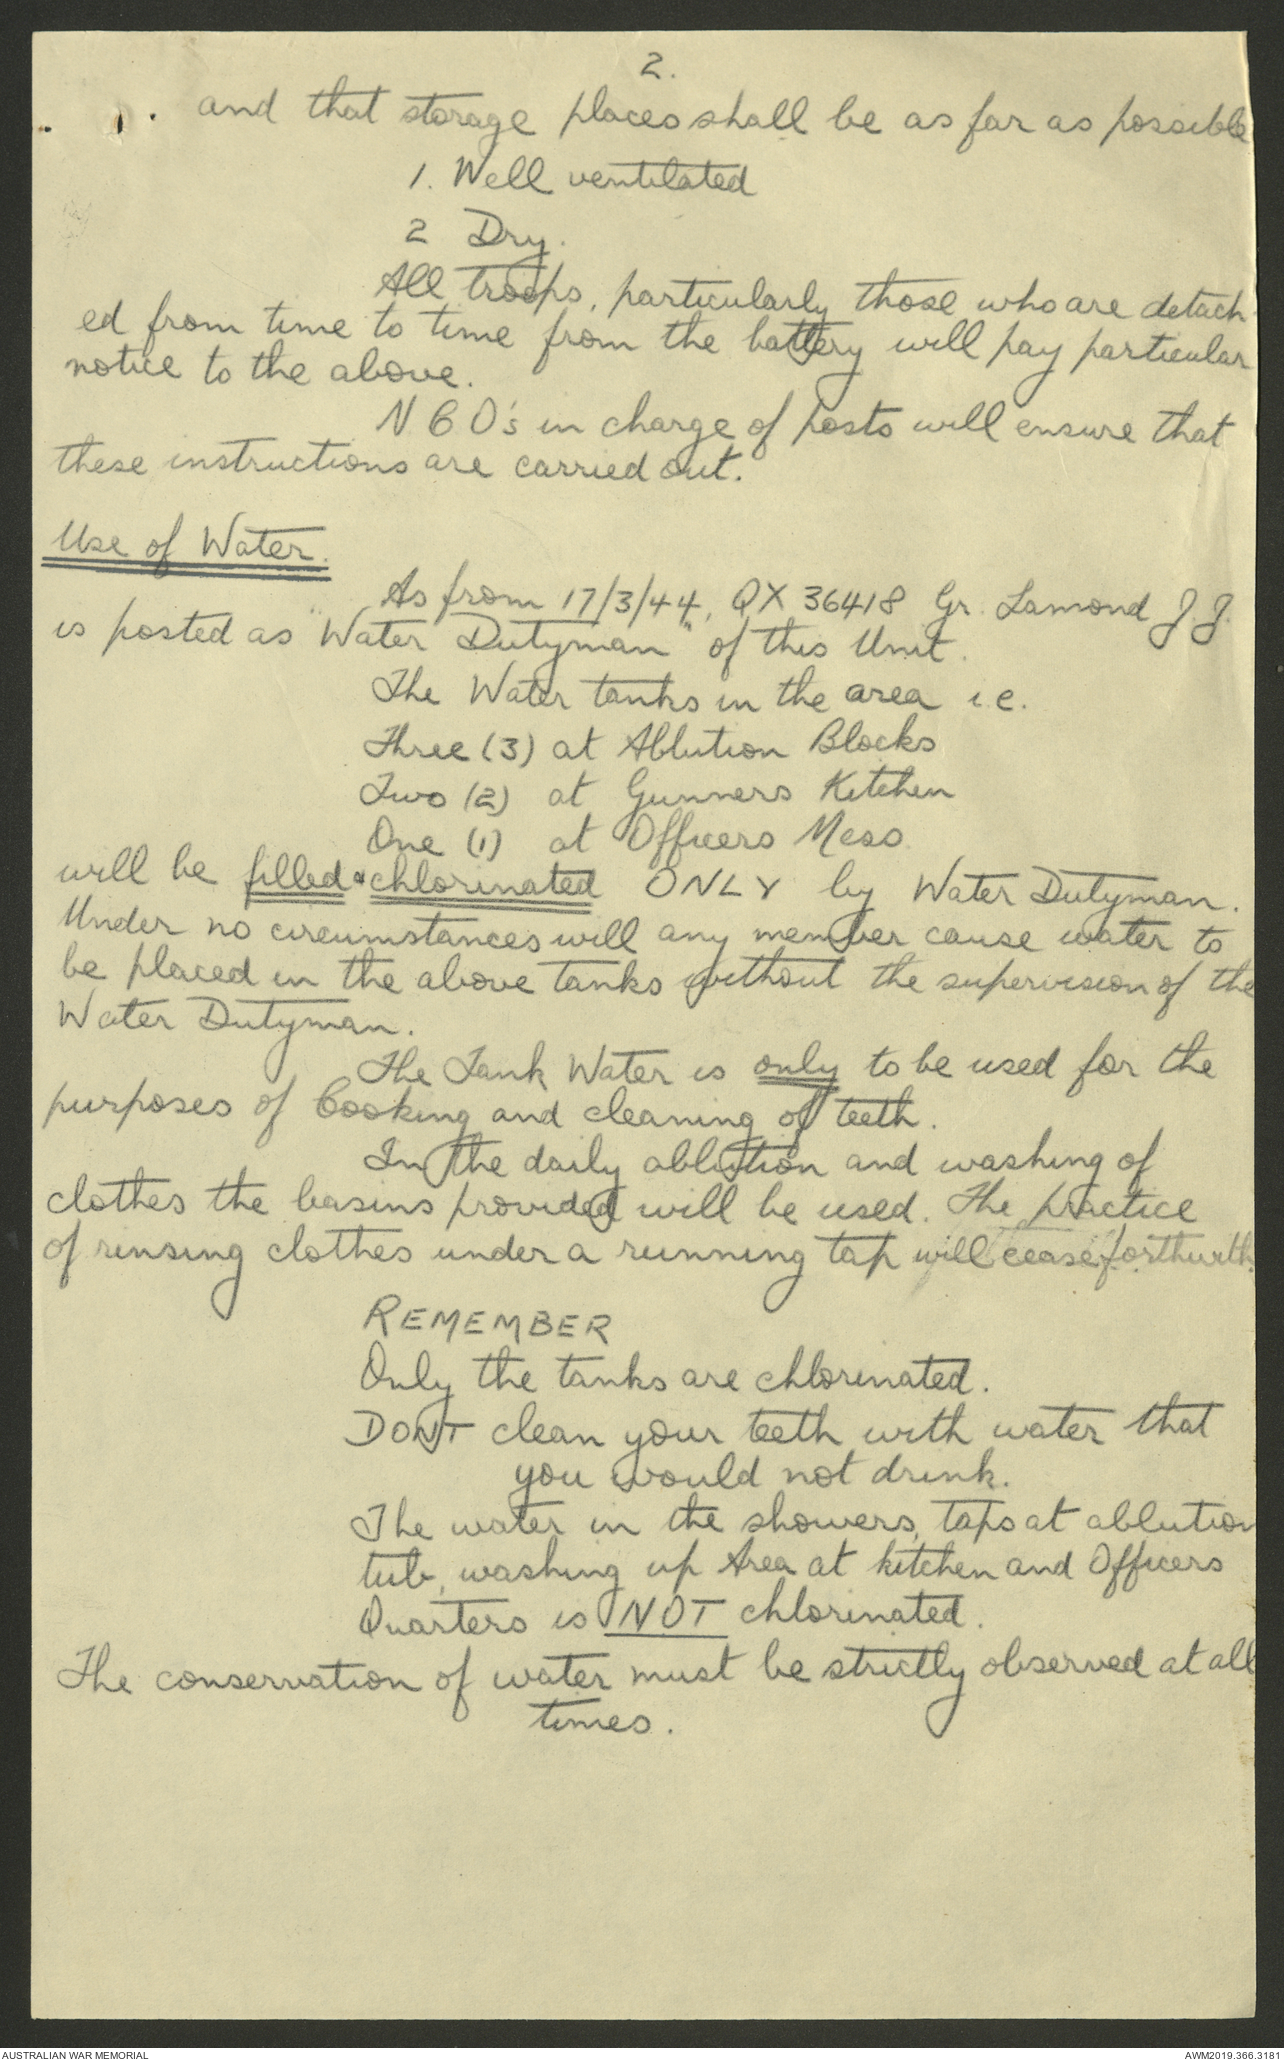 2.
and that storage places shall be as far as possible
1. Well ventilated
2 Dry.
All troops, particularly those who are detach-
ed from time to time from the battery will pay particular
notice to the above.
N C O's in charge of posts will ensure that
these instructions are carried out.
Use of Water.
As from 17/3/44, QX 36418 Gr. Lamond J J.
is posted as "Water Dutyman" of this Unit.
The Water tanks in the area i.e.
Three (3) at Ablution Blocks
Two (2) at Gunners Kitchen
One (1) at Officers Mess.
will be filled & chlorinated ONLY by Water Dutyman.
Under no circumstances will any member cause water to
be placed in the above tanks without the supervision of the
Water Dutyman.
The Tank Water is only to be used for the
purposes of Cooking and cleaning of teeth.
In the daily ablution and washing of
clothes the basins provided will be used. The practice
of rinsing clothes under a running tap will cease forthwith.
REMEMBER
Only the tanks are chlorinated.
DONT clean your teeth with water that
you would not drink.
The water in the showers, taps at ablution
tub, washing up Area at kitchen and Officers
Quarters is NOT chlorinated.
The conservation of water must be strictly observed at all
times.
AUSTRALIAN WAR MEMORIAL
AWM2019.366.3181